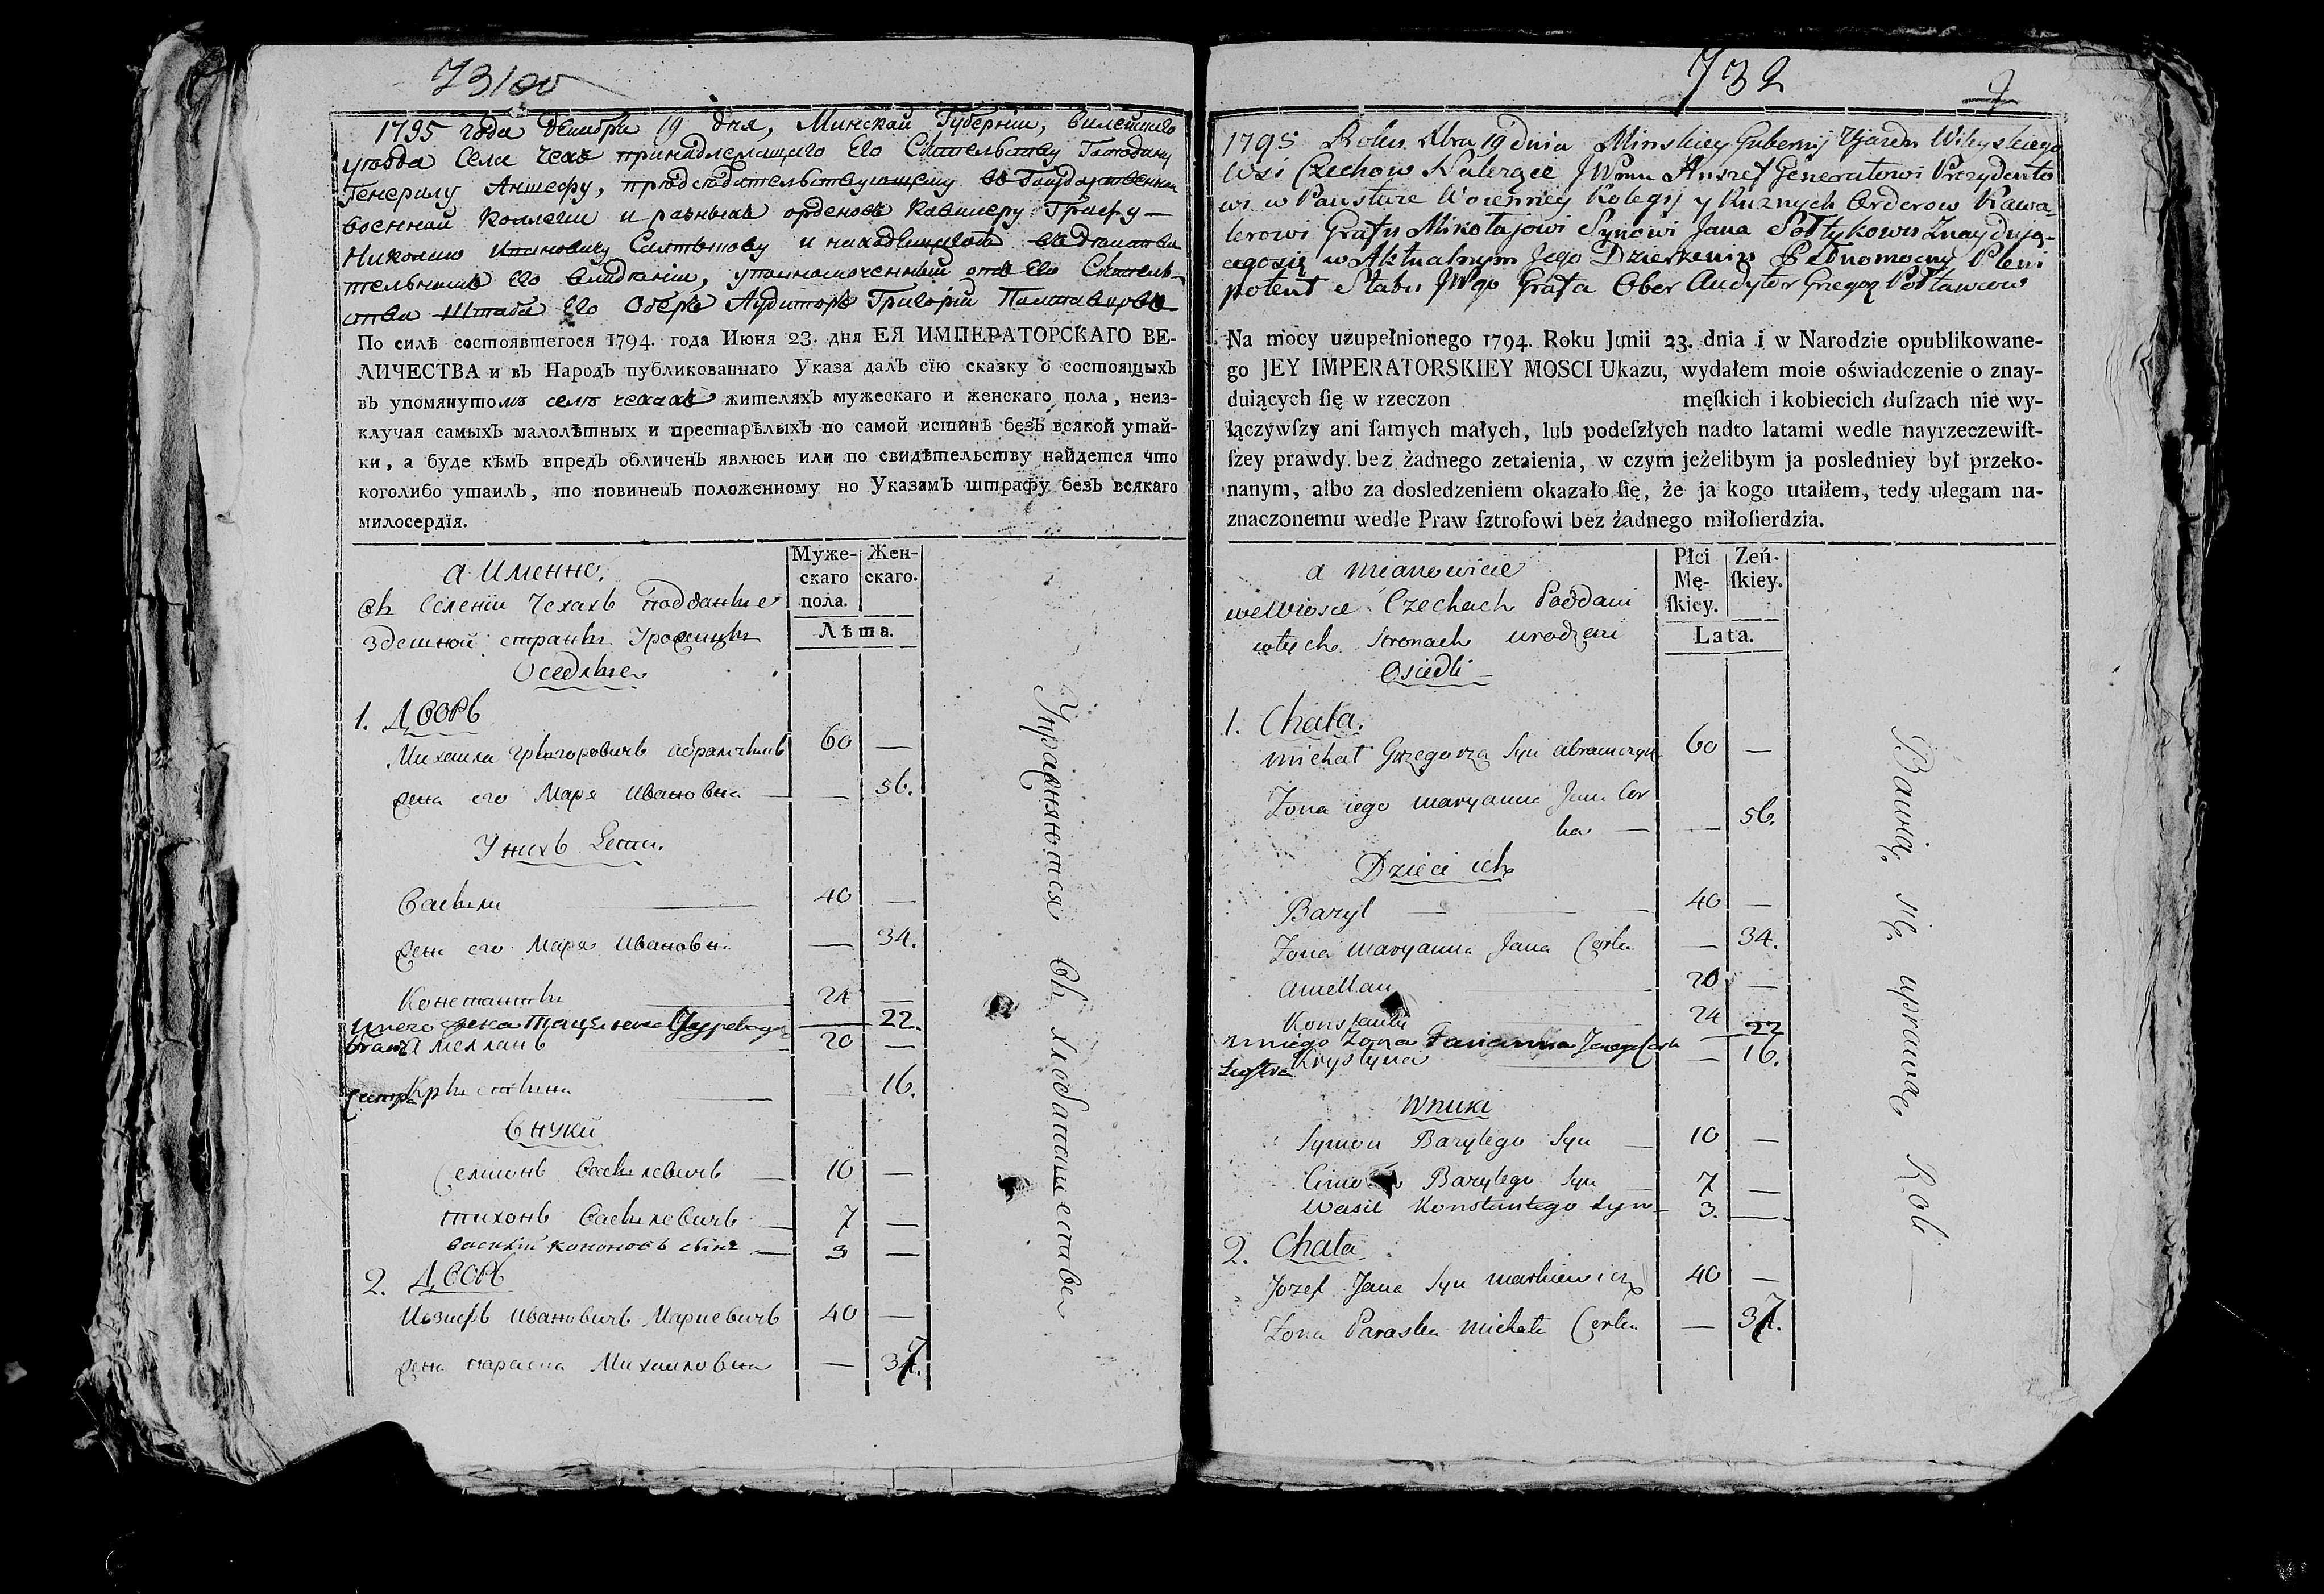 731 об
1795 года Декабря 19 дня, Минской Губернии, Вилейского
уезда Села Чехъ принадлежащего Его Сіятельству Господину
Генералу Аншефу, председательствующему въ Государственной
военной Коллегіи и разныхъ орденовъ Кавалеру Графу
Николаю Ивановичу Салтыкову и находящегося въ
его владеніи, уполномоченный отъ Его Сіятель-
ства Штаба Его Оберъ Аудиторъ Григорій
По силѣ состоявшегося 1794. года Июня 23. дня ЕЯ ИМПЕРАТОРСКАГО ВЕ-
ЛИЧЕСТВА и въ Народъ публикованнаго Указа далъ сїю сказку о состоящыхъ
въ упомянутомъ селѣ чехахъ жителяхъ мужескаго и женскаго пола, неиз-
ключая самыхъ малолѣтныхъ и престарѣлыхъ по самой истинѣ безъ всякой утай-
ки, а буде кѣмъ впредь обличенъ явлюсь или по свидѣтельству найдется что
коголибо утаилъ, то повиненъ положенному по Указамъ штрафу безъ всякаго
милосердїя.
а Именно.
Въ Селеніи Чехахъ подданые
здешной страны Урожинцы
Оседлые
Муже-
скаго
пола.
Жен-
скаго.
Лѣта.
1. Дворъ
Михаила Григоровичъ Абрамчикъ 60 —
жена его Маря Ивановна — 56.
У нихъ Дети.
Василь 40 —
жена его Маря Ивановна — 34.
Константы 24 —
у него жена — 22.
братъ Амелланъ 20 —
сестра Крыстына — 16.
Внуки
Семионъ Василевичъ 10 —
Тихонъ Василевичъ 7 —
Василій Кононовъ сынъ 3 —
2. Дворъ
Иозиефъ Ивановичъ Маркевичъ 40 —
жена параска Михаиловна — 37.
Упражняются въ хлебопашестве
732
1795 Roku Xbra 19 dnia Minskiey Gubernij Ujazdu Wileyskiego
Wsi Czechow Należącey JWmu Anszef Generałowi Prezydento
wi w Panstwie Woienney Kolegij y Ruznych Orderow Kawa-
lerowi Grafu Mikołajowi Synowi Jana Sołtykowu Znaydują-
cego się w Aktualnym Jego Dzierżeniu Pełnomocny Pleni
potent Stabu JWgo Grafa Ober Audytor Grzegorz Połtawcow
Na mocy uzupełnionego 1794. Roku Junii 23. dnia i w Narodzie opublikowane-
go JEY IMPERATORSKIEY MOSCI Ukazu, wydałem moie oświadczenie o znay-
duiących ſię w rzeczon męſkich i kobiecich duſzach nie wy-
łączywſzy ani ſamych małych, lub podeſzłych nadto latami wedle nayrzeczewiſt-
ſzey prawdy bez żadnego zetaienia, w czym jeżelibym ja posledniey był przeko-
nanym, albo za dosledzeniem okazało ſię, że ja kogo utaiłem, tedy ulegam na-
znaczonemu wedle Praw ſztrofowi bez żadnego miłoſierdzia.
a mianowicie
we Wiosce Czechach Poddani
w tych stronach urodzeni
Osiedli
Płci
Mę-
ſkiey.
Zeń-
ſkiey.
Lata.
1. Chata.
Michał Grzegorza Syn Abramczyk 60 —
Zona iego Maryanna Jana Cor
ka — 56.
Dzieci ich
Bazyl 40 —
Zona Maryanna Jana Corka — 34.
Amellan 20 —
Konstanty 24
u niego Zona Jana Corka — 22
siostra Krystyna — 16.
Wnuki
Symon Bazylego Syn 10 —
Bazylego Syn 7 —
Wasil Konstantego syn 3. —
2. Chata
Jozef Jana Syn Markiewicz 40 —
Zona Paraska Michała Corka — 37.
Bawią się uprawą Roli —